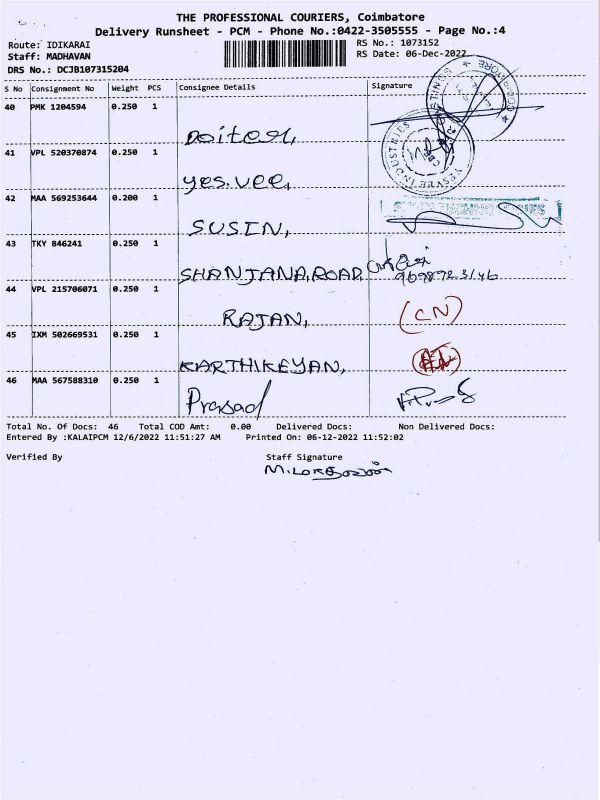 THE PROFESSIONAL COURIERS, Coimbatore
Delivery Runsheet - PCM - Phone No.:0422-3505555 - Page No.:4
Route: IDIKARAI RS No.: 1073152
Staff: MADHAVAN RS Date: 06-Dec-2022
DRS No.: DCJB107315204
S No Consignment No Weight PCS Consignee Details Signature
40 PMK 1204594 0.250 1
41 VPL 520370874 0.250 1 yes.vee,
42 MAA 569253644 0.200 1 SUSIN,
43 TKY 846241 0.250 1 SHANJANA, ROAD
44 VPL 215706071 0.250 1 RAJAN, (CN)
45 IXM 502669531 0.250 1 KARTHIKEYAN,
46 MAA 567588310 0.250 1 Prasad
Total No. Of Docs: 46 Total COD Amt: 0.00 Delivered Docs: Non Delivered Docs:
Entered By :KALAIPCM 12/6/2022 11:51:27 AM Printed On: 06-12-2022 11:52:02
Verified By Staff Signature